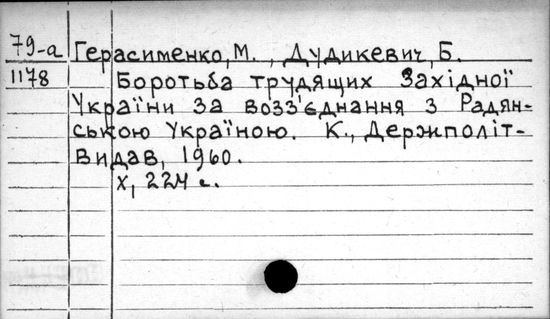 79-а Герасименко, М., Дудикевич, Б.
1178 Боротьба трудящих Західної
України за возз'єднання з Радян-
ською Україною. К., Держполіт-
видав, 1960.
X, 224 с.